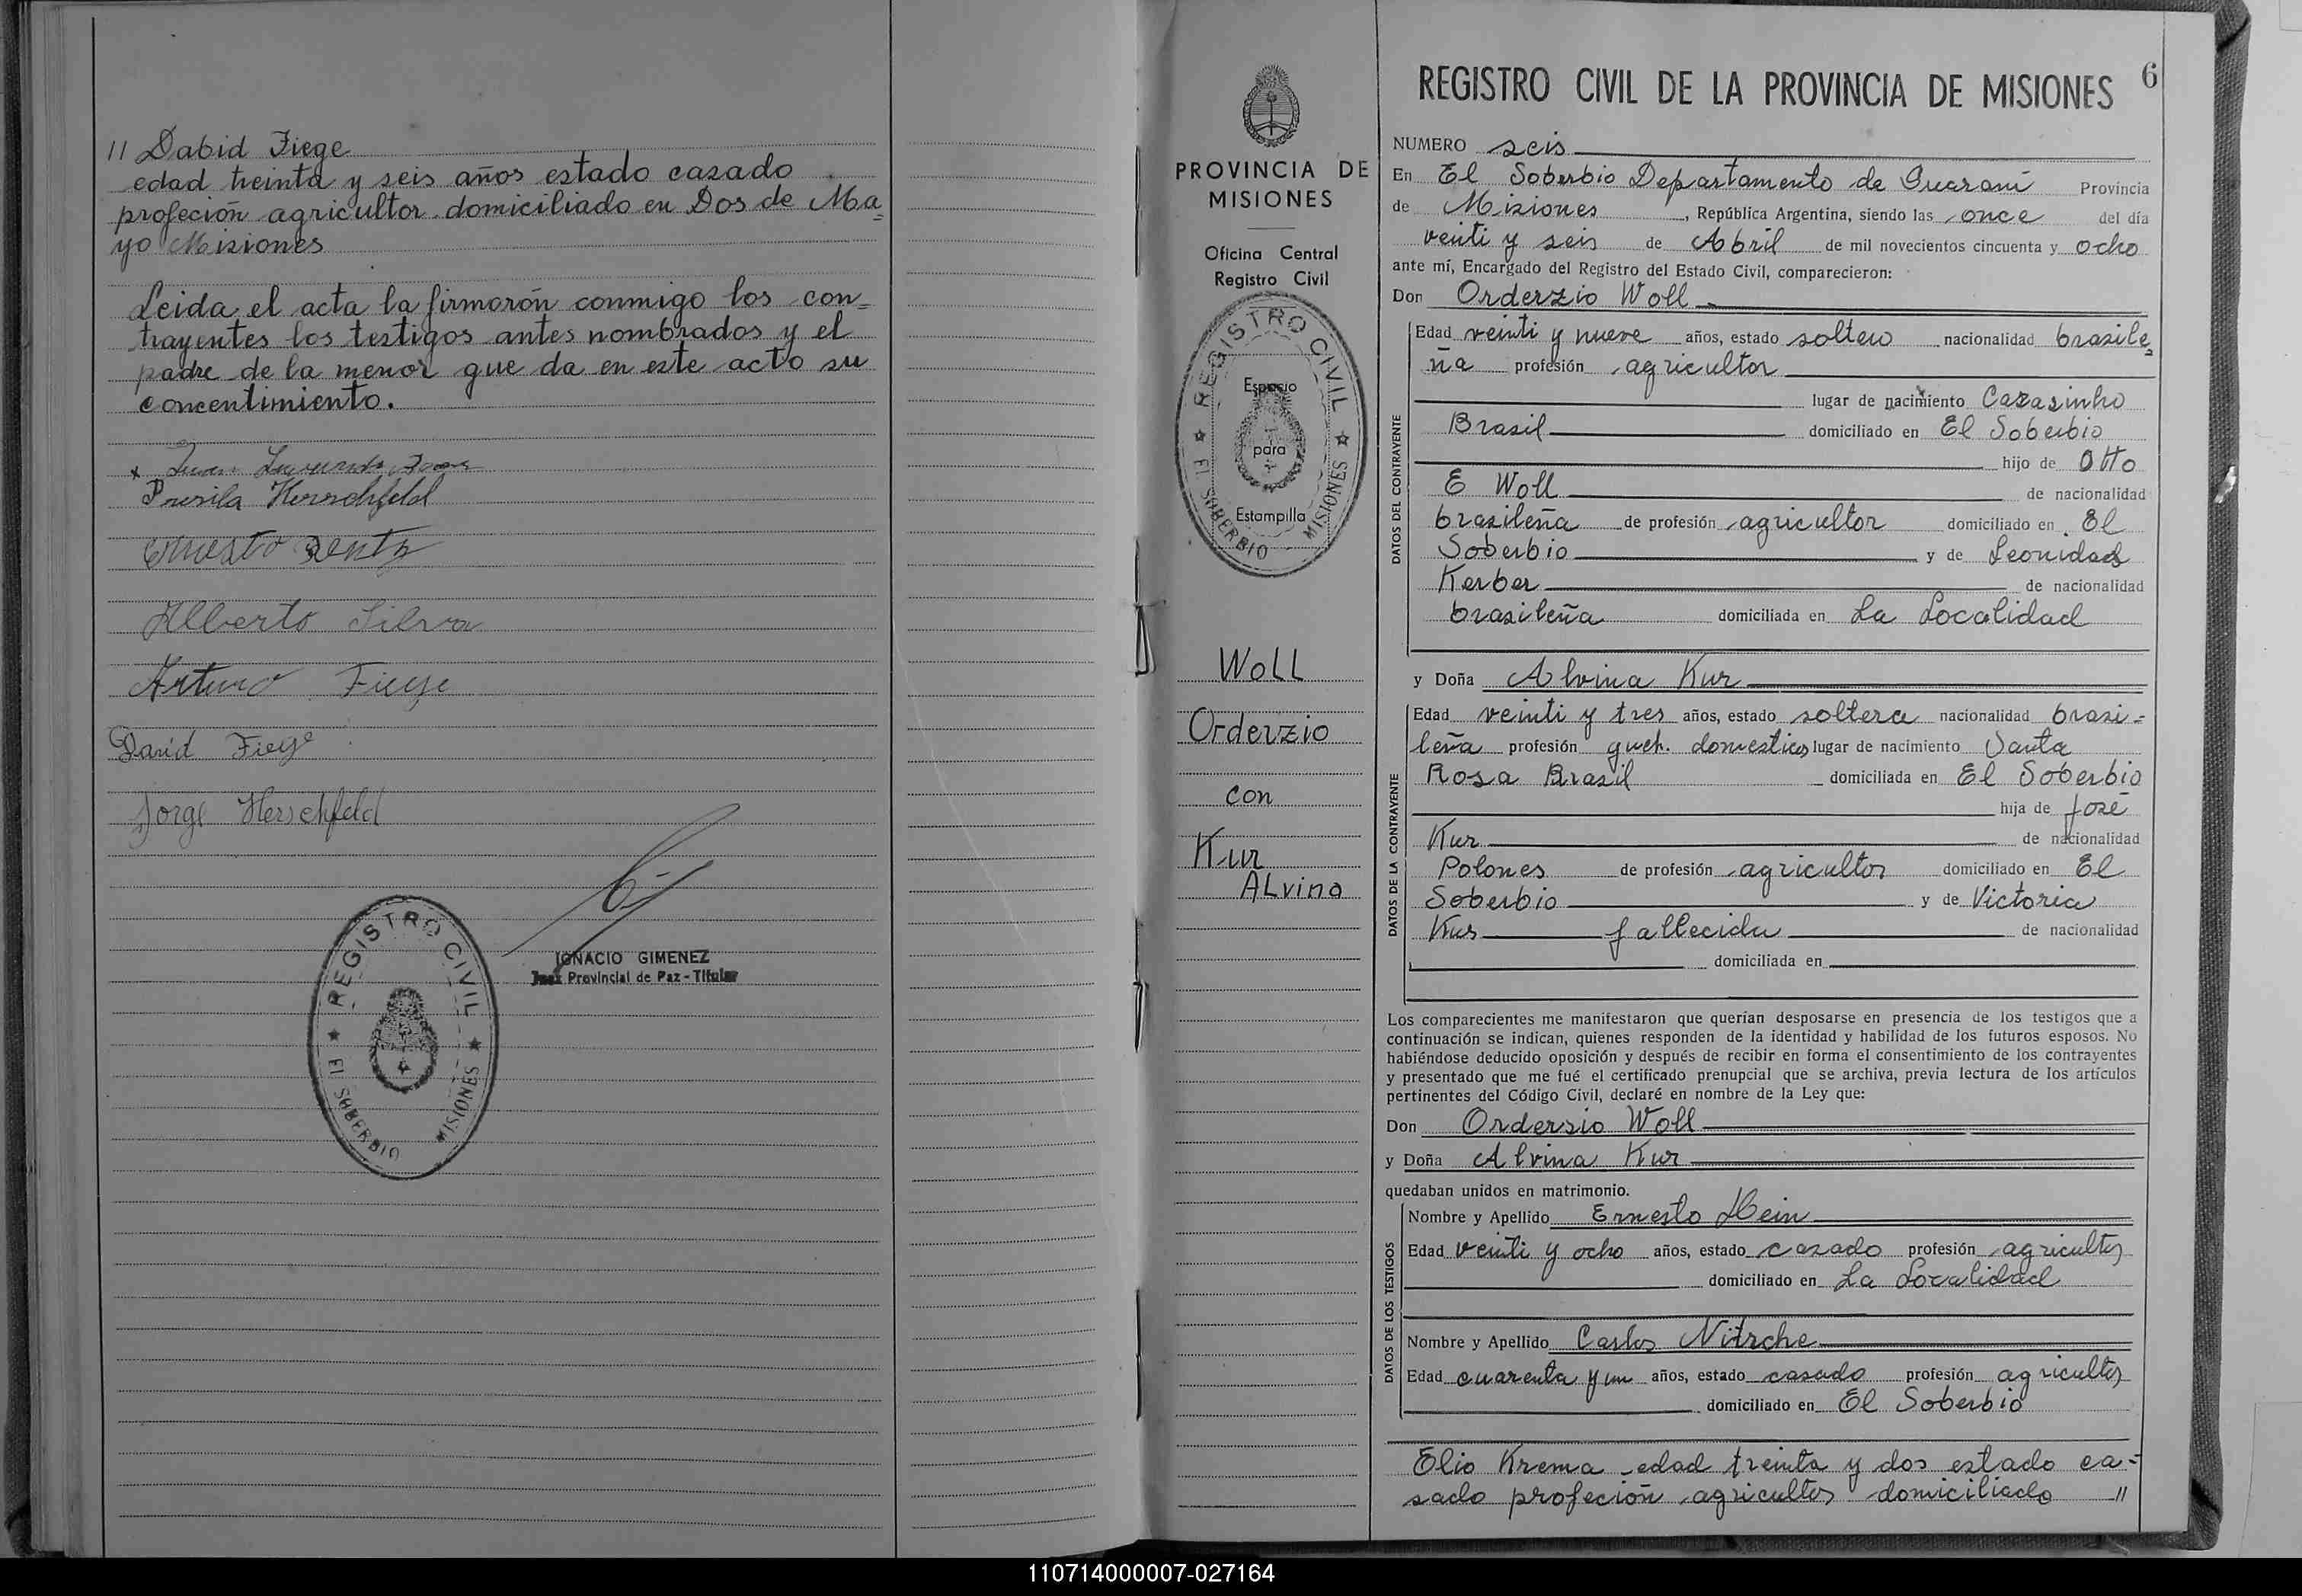 11 Dabid Fiege
edad treinta y seis años estado casado
profeción agricultor domiciliado en Dos de Ma=
yo Misiones
Leida el acta la firmarón conmigo los con=
trayentes los testigos antes nombrados y el
padre de la menor que da en este acto su
concentimiento.
x Juan
Presila Herschfeld
Ernesto Rentz
Alberto Silva
Arturo Fiege
David Fiege
Jorge Herschfeld
IGNACIO GIMENEZ
Juez Provincial de Paz - Titular
REGISTRO CIVIL
EL SOBERBIO MISIONES
PROVINCIA DE
MISIONES
Oficina Central
Registro Civil
REGISTRO CIVIL
Espacio
para
Estampilla
EL SOBERBIO MISIONES
WOLL
Orderzio
con
Kur
ALvina
REGISTRO CIVIL DE LA PROVINCIA DE MISIONES 6
NUMERO seis
En El Soberbio Departamento de Guaraní Provincia
de Misiones, República Argentina, siendo las once del día
veinti y seis de Abril de mil novecientos cincuenta y ocho
ante mí, Encargado del Registro del Estado Civil, comparecieron:
Don Orderzio Woll
DATOS DEL CONTRAYENTE
Edad veinti y nueve años, estado soltero nacionalidad brasile=
ña profesión agricultor
lugar de nacimiento Carasinho
Brasil domiciliado en El Soberbio
hijo de Otto
E Woll de nacionalidad
brasileña de profesión agricultor domiciliado en El
Soberbio y de Leonidas
Kerber de nacionalidad
brasileña domiciliada en La Localidad
y Doña Alvina Kur
DATOS DE LA CONTRAYENTE
Edad veinti y tres años, estado soltera nacionalidad brasi=
leña profesión queh. domesticos lugar de nacimiento Santa
Rosa Brasil domiciliada en El Soberbio
hija de José
Kur de nacionalidad
Polones de profesión agricultor domiciliado en El
Soberbio y de Victoria
Kur fallecida de nacionalidad
domiciliada en
Los comparecientes me manifestaron que querían desposarse en presencia de los testigos que a
continuación se indican, quienes responden de la identidad y habilidad de los futuros esposos. No
habiéndose deducido oposición y después de recibir en forma el consentimiento de los contrayentes
y presentado que me fué el certificado prenupcial que se archiva, previa lectura de los artículos
pertinentes del Código Civil, declaré en nombre de la Ley que:
Don Ordersio Woll
y Doña Alvina Kur
quedaban unidos en matrimonio.
DATOS DE LOS TESTIGOS
Nombre y Apellido Ernesto Hein
Edad veinti y ocho años, estado casado profesión agricultor
domiciliado en La Localidad
Nombre y Apellido Carlos Nitzche
Edad cuarenta y un años, estado casado profesión agricultor
domiciliado en El Soberbio
Elio Krema edad treinta y dos estado ca=
sado profeción agricultor domiciliado 11
110714000007-027164